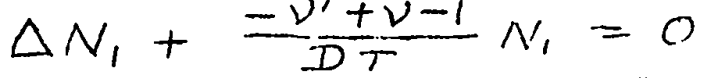 ΔN₁ + (-ν' + ν - 1)/(Dτ) N₁ = 0